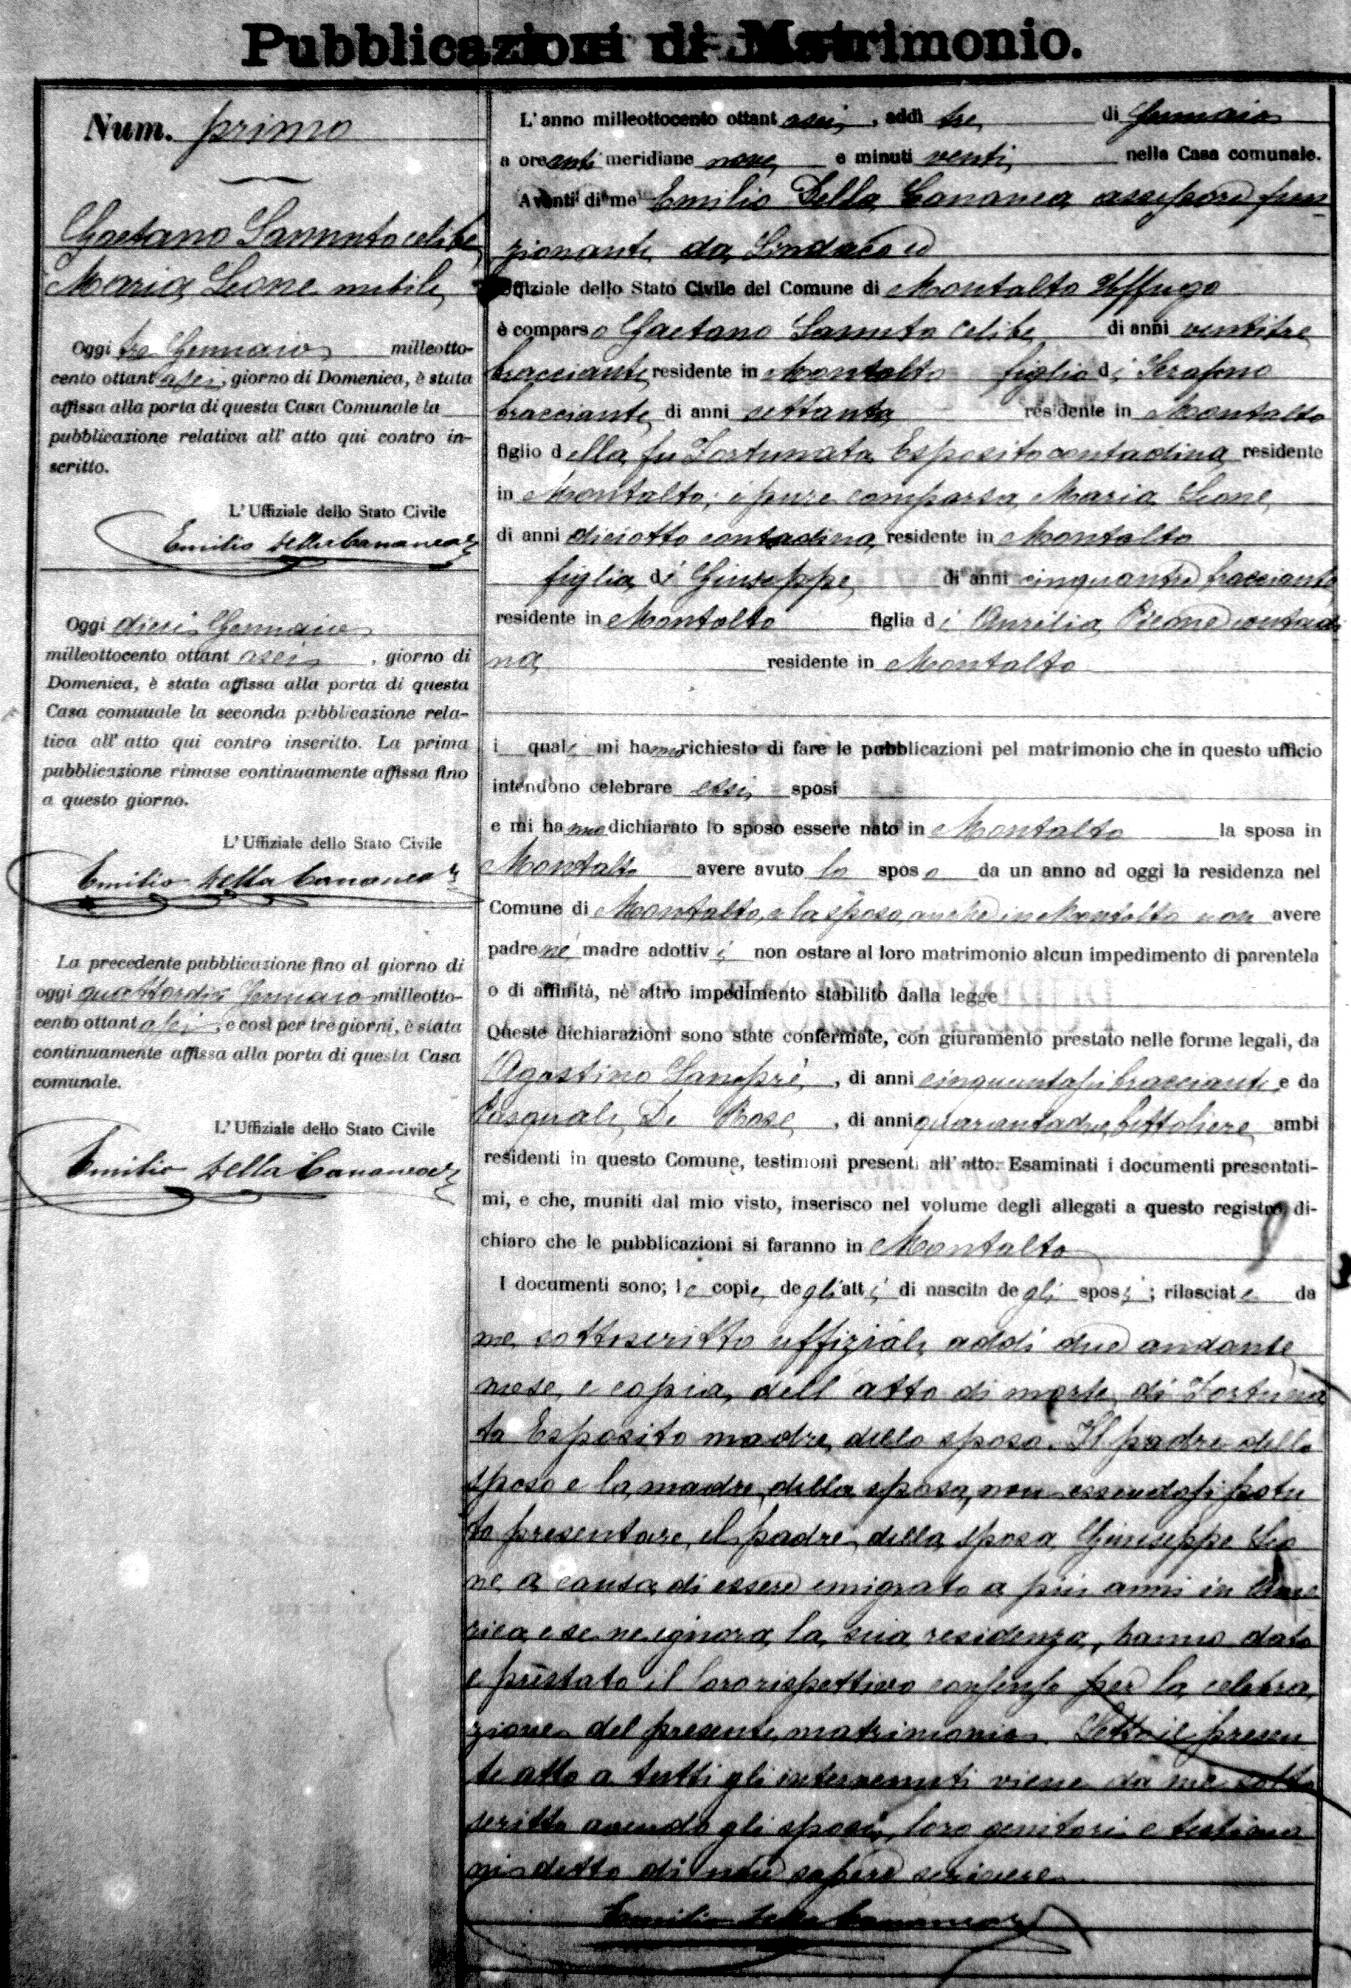 Pubblicazioni di Matrimonio.
Num. primo
Gaetano Sannuto celibe
Maria Leone nubile
Oggi tre Gennaio milleotto-
cento ottantasei, giorno di Domenica, è stata
affissa alla porta di questa Casa Comunale la
pubblicazione relativa all' atto qui contro in-
scritto.
L' Uffiziale dello Stato Civile
Emilio Della Cananea
Oggi dieci Gennaio
milleottocento ottantasei, giorno di
Domenica, è stata affissa alla porta di questa
Casa comuuale la seconda pubblicazione rela-
tiva all' atto qui contro inscritto. La prima
pubblicazione rimase continuamente affissa fino
a questo giorno.
L' Uffiziale dello Stato Civile
Emilio Della Cananea
La precedente pubblicazione fino al giorno di
oggi quattordici Gennaio milleotto-
cento ottantasei, e così per tre giorni, è stata
continuamente affissa alla porta di questa Casa
comunale.
L' Uffiziale dello Stato Civile
Emilio Della Cananea
L' anno milleottocento ottantasei, addì tre di Gennaio
a ore anti meridiane nove e minuti venti nella Casa comunale.
Avanti di me Emilio Della Cananea assessore fun
zionante da Sindaco ed
Uffiziale dello Stato Civile del Comune di Montalto Uffugo
è comparso Gaetano Sannuto celibe di anni ventitre
bracciante residente in Montalto figlio di Serafino
bracciante di anni settanta residente in Montalto
figlio della fu Fortunata Esposito contadina residente
in Montalto; è pure comparsa Maria Leone
di anni diciotto contadina residente in Montalto
figlia di Giuseppe di anni cinquantre bracciante
residente in Montalto figlia di Aurelia contadi
na residente in Montalto
i quali mi hanno richiesto di fare le pubblicazioni pel matrimonio che in questo ufficio
intendono celebrare essi sposi
e mi hanno dichiarato lo sposo essere nato in Montalto la sposa in
Montalto avere avuto lo sposo da un anno ad oggi la residenza nel
Comune di Montalto, e la sposa anche in Montalto non avere
padre nè madre adottivi non ostare al loro matrimonio alcun impedimento di parentela
o di affinità, nè altro impedimento stabilito dalla legge
Queste dichiarazioni sono state confermate, con giuramento prestato nelle forme legali, da
Agostino, di anni cinquantasei bracciante e da
Pasquale De Rose, di anni quarantadue bettoliere ambi
residenti in questo Comune, testimoni presenti all' atto. Esaminati i documenti presentati-
mi, e che, muniti dal mio visto, inserisco nel volume degli allegati a questo registro, di-
chiaro che le pubblicazioni si faranno in Montalto
I documenti sono; le copie degli atti di nascita degli sposi; rilasciate da
me sottoscritto uffiziale addì due andante
mese, e copia dell' atto di morte di Fortuna
ta Esposito madre dello sposo. Il padre dello
sposo e la madre della sposa, non essendosi potu
to presentare il padre della sposa Giuseppe Leo
ne a causa di essere emigrato a più anni in Ame
rica e se ne ignora la sua residenza, hanno dato
e prestato il loro rispettivo consenso per la celebra
zione del presente matrimonio. Letto il presen
te atto a tutti gli intervenuti viene da me sotto
scritto avendo gli sposi, loro genitori e testimo
ni detto di non sapere scrivere.
Emilio Della Cananea